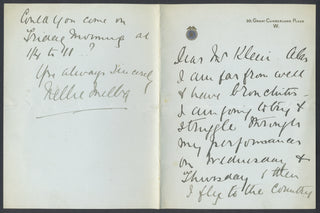 30, Great Cumberland Place
W.
Dear Mr Klein. Alas
I am far from well
& have bronchitis -
I am going to try &
struggle through
my performances
on Wednesday &
Thursday & then
I fly to the country
Could you come on
Friday morning at
1/4 to 11 ?
Yrs always sincerely
Nellie Melba